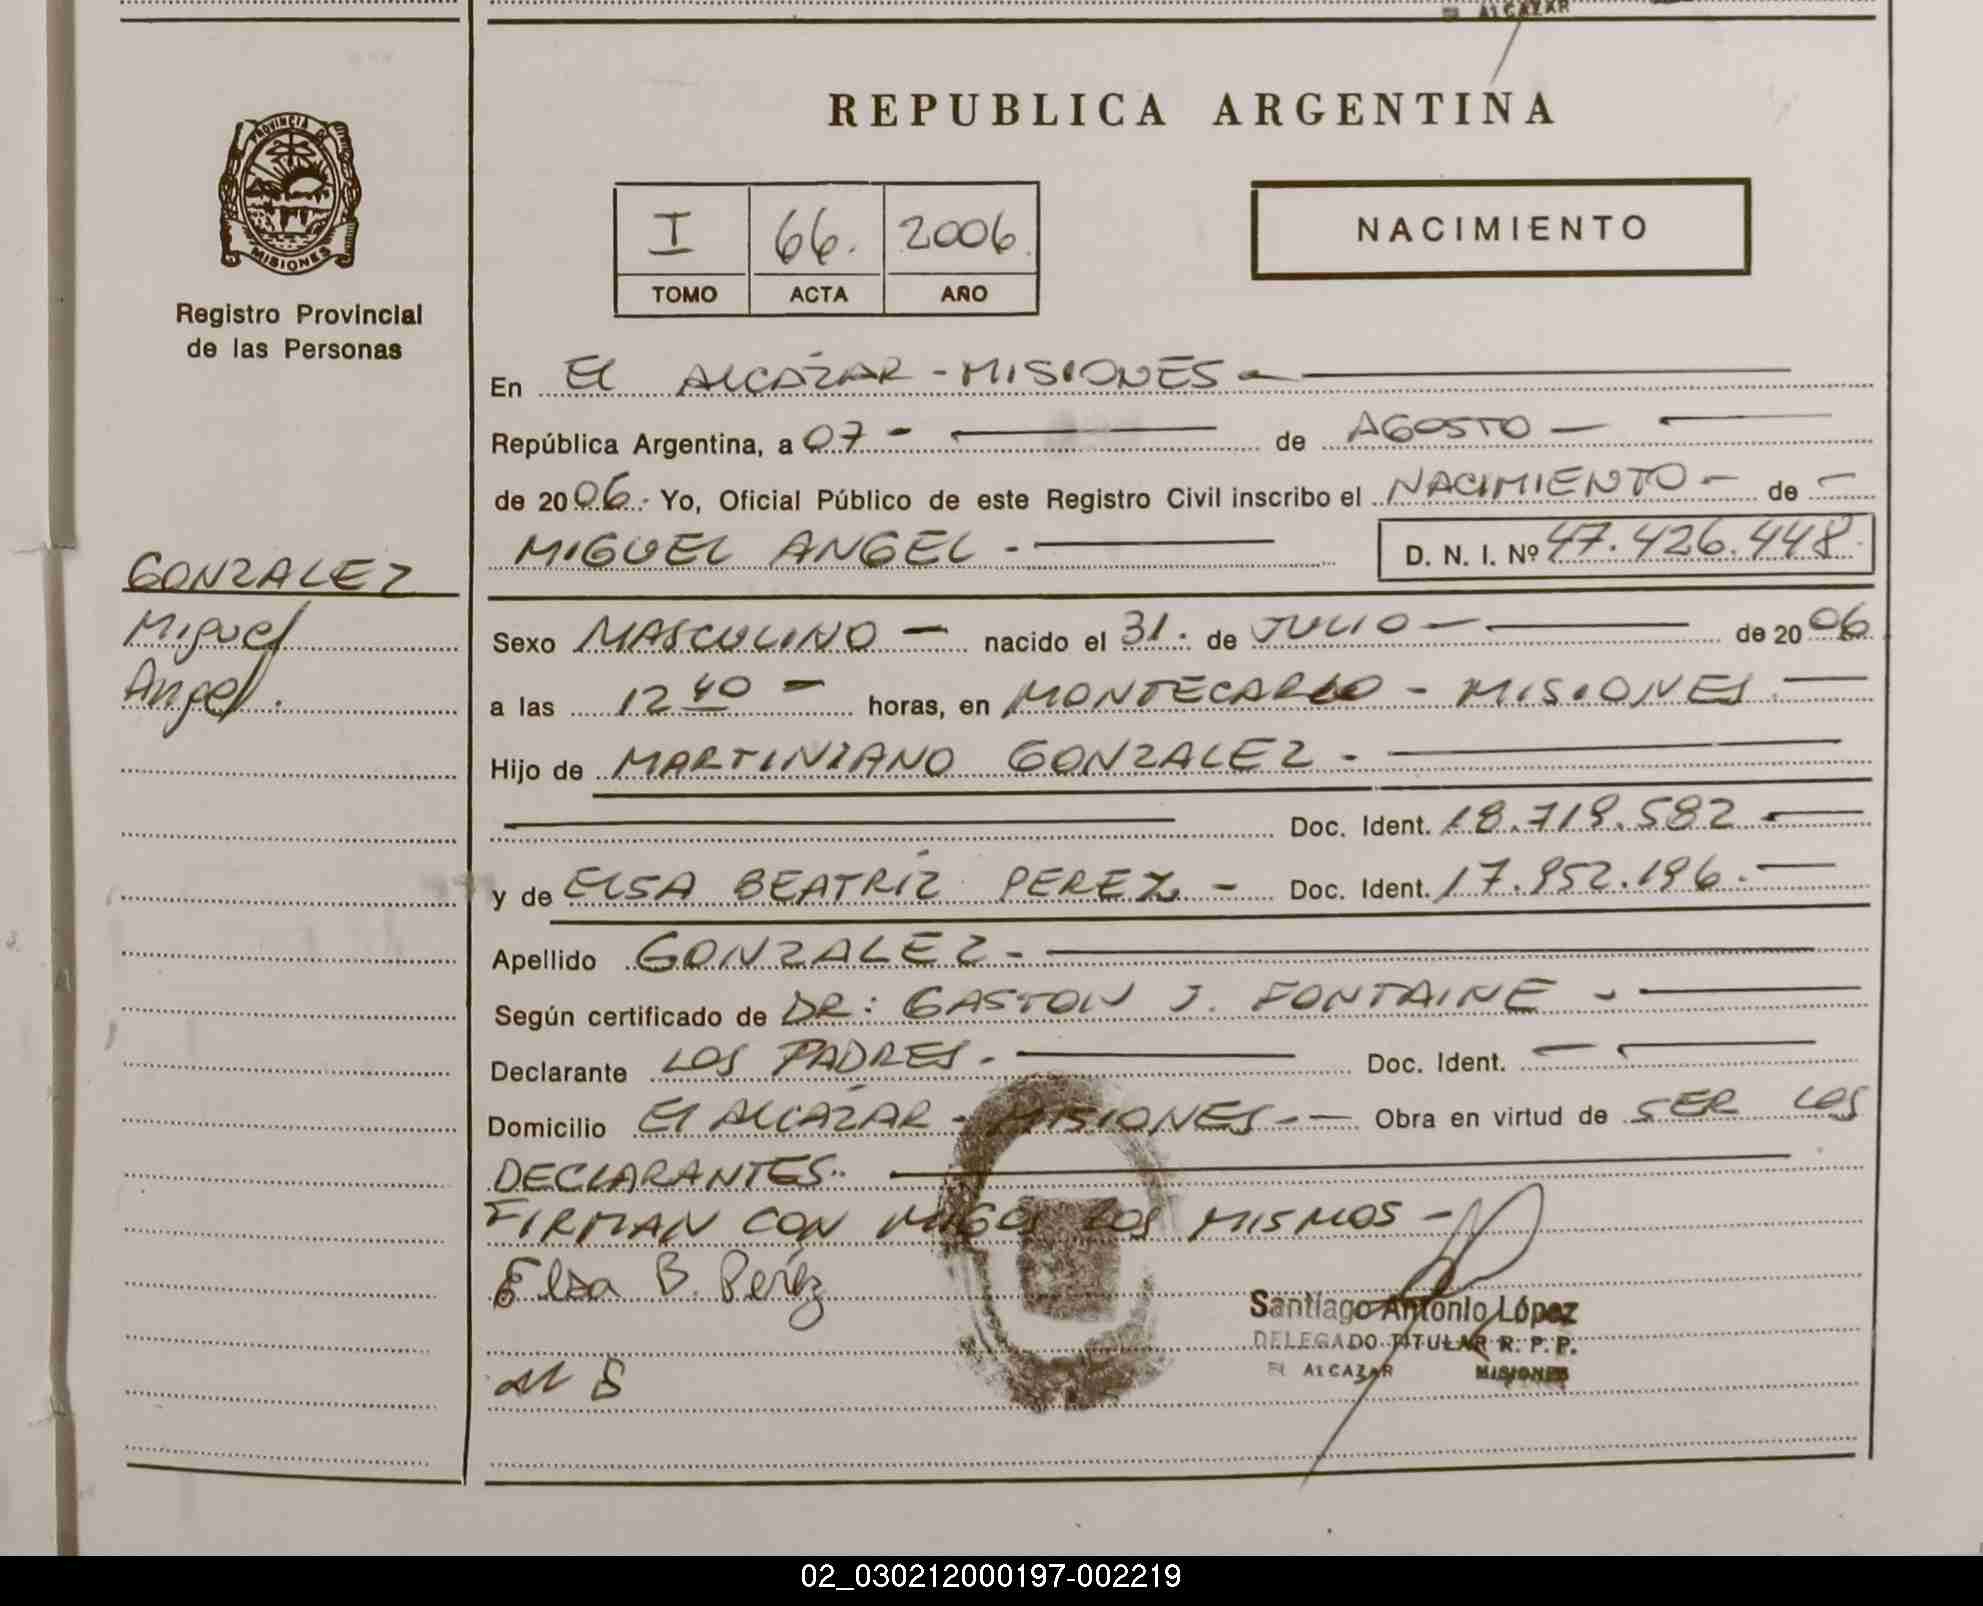 ALCAZAR
REPUBLICA ARGENTINA
PROVINCIA DE
MISIONES
Registro Provincial
de las Personas
I 66. 2006
TOMO ACTA AÑO
NACIMIENTO
En El ALCÁZAR - MISIONES -
República Argentina, a 07 - de AGOSTO -
de 2006. Yo, Oficial Público de este Registro Civil inscribo el NACIMIENTO - de -
MIGUEL ANGEL - D. N. I. Nº 47.426.448.
GONZALEZ
Miguel
Angel.
Sexo MASCULINO - nacido el 31. de JULIO - de 2006
a las 12 40 - horas, en MONTECARLO - MISIONES.
Hijo de MARTINIANO GONZALEZ -
Doc. Ident. 18.719.582 -
y de ELSA BEATRÍZ PEREZ - Doc. Ident. 17.952.196. -
Apellido GONZALEZ -
Según certificado de DR: GASTON J. FONTAINE -
Declarante LOS PADRES - Doc. Ident. -
Domicilio El ALCAZAR - MISIONES - Obra en virtud de SER LOS
DECLARANTES..
FIRMAN CON MIGO LOS MISMOS -
Elsa B. Peréz
Santiago Antonio López
DELEGADO TITULAR R. P. P.
EL ALCAZAR MISIONES
02_030212000197-002219